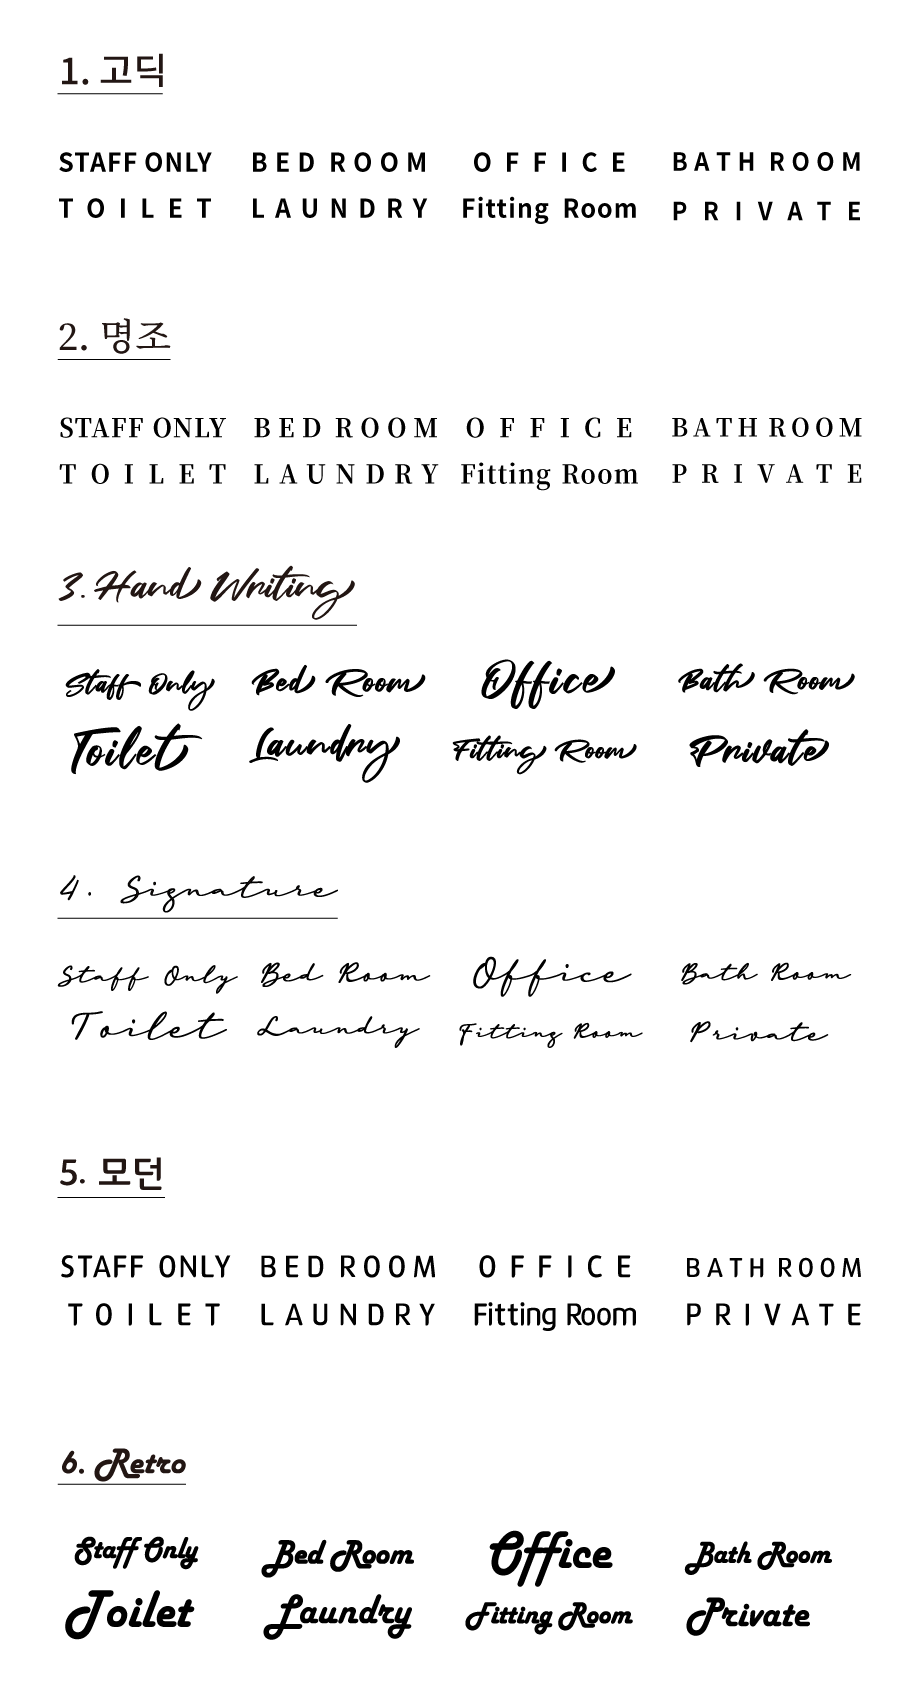 1. 고딕
STAFF ONLY BED ROOM OFFICE BATH ROOM
TOILET LAUNDRY Fitting Room PRIVATE
2. 명조
STAFF ONLY BED ROOM OFFICE BATH ROOM
TOILET LAUNDRY Fitting Room PRIVATE
3. Hand Writing
Staff Only Bed Room Office Bath Room
Toilet Laundry Fitting Room Private
4. Signature
Staff Only Bed Room Office Bath Room
Toilet Laundry Fitting Room Private
5. 모던
STAFF ONLY BED ROOM OFFICE BATH ROOM
TOILET LAUNDRY Fitting Room PRIVATE
6. Retro
Staff Only Bed Room Office Bath Room
Toilet Laundry Fitting Room Private